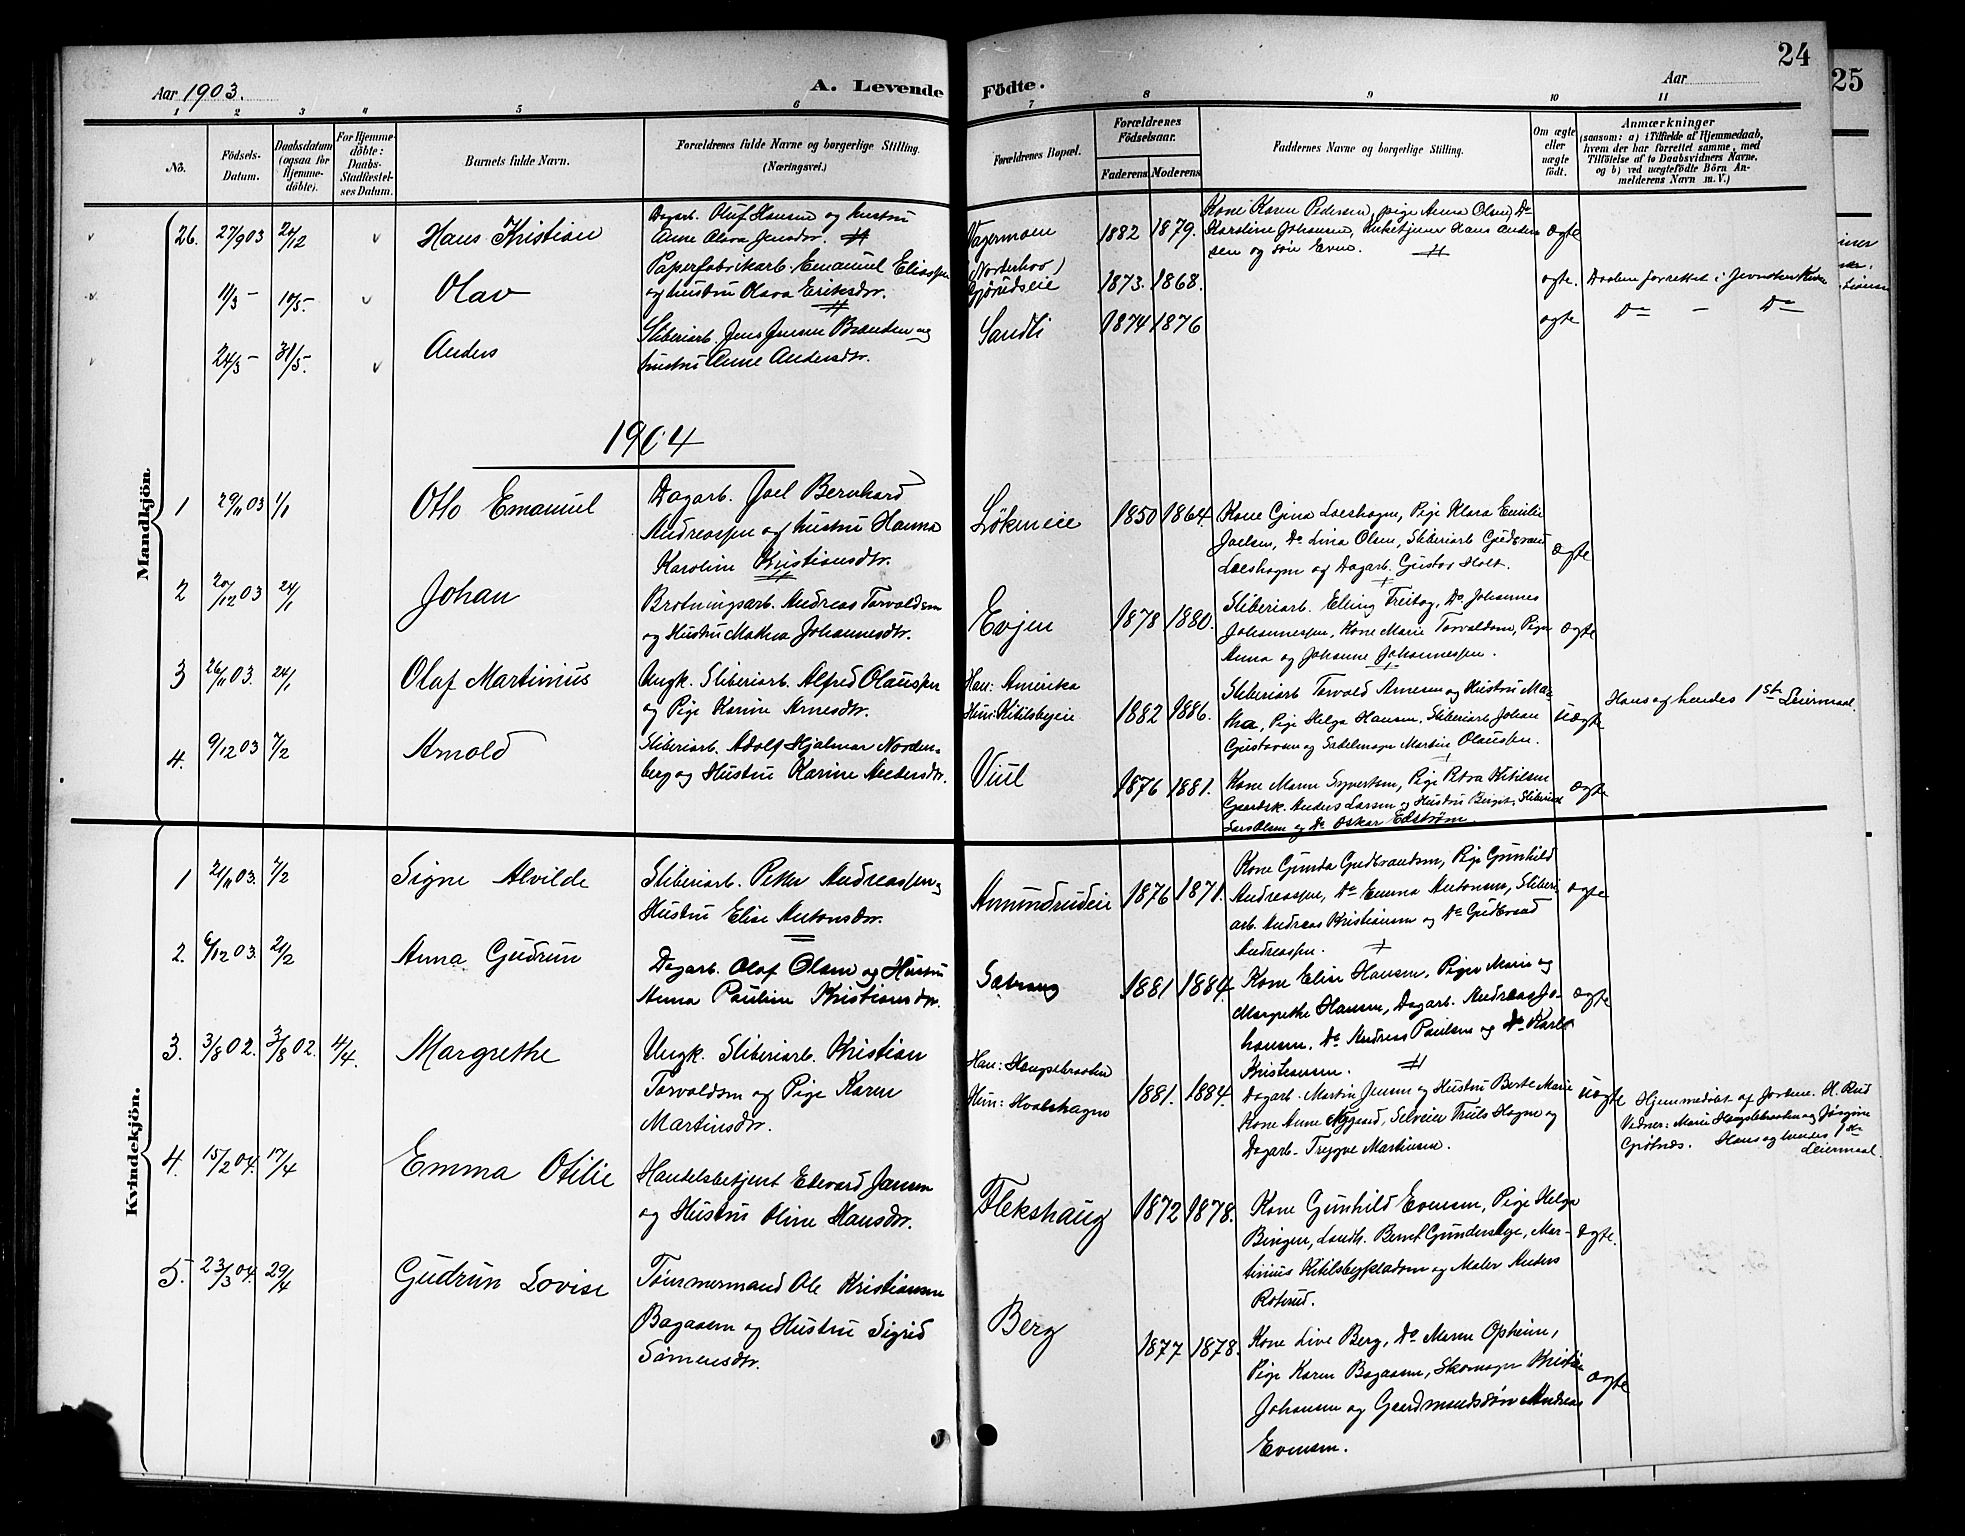 24
25
Aar 1903.
A. Levende
Födte.
Aar
1 2 3 4 5 6 7 8 9 10 11
No.
Födsels-
Datum.
Daabsdatum
(ogsaa for
Hjemme-
döbte).
For Hjemme-
döbte:
Daabs-
Stadfæstel-
ses Datum.
Barnets fulde Navn.
Forældrenes fulde Navne og borgerlige Stilling.
(Næringsvei.)
Forældrenes Bopæl.
Forældrenes
Födselsaar.
Faderens
Moderens
Faddernes Navne og borgerlige Stilling.
Om ægte
eller
uægte
födt.
Anmærkninger
(saasom: a) i Tilfælde af Hjemmedaab,
hvem der har forrettet samme, med
Tilföielse af to Daabsvidners Navne.
og b) ved uægtefödte Börn An-
melderens Navn m. V.)
Mandkjön.
26. 27/9 03 20/12
Hans Kristian
Dagarb. Oluf Hansen og hustru
Anne Olava Jensdtr.
Vagermoen
1882 1879.
Kone Karen Pedersen, pige Anna Olsen, Do
Karoline Johansen, Kirketjener Hans Ander
sen og søn Even.
ægte
11/3 - 10/5-
Olav
Paperfabrikarb. Emanuel Eliassen
og hustru Olava Eriksdtr.
(Norderhov)
1873. 1868.
ægte.
Daaben forrettet i
24/3 - 31/5-
Anders
Sliberiarb. Jens Jensen Braaden og
hustru Anne Andersdtr.
Sandli
1874 1876
ægte
Do - Do
1904
1 29/11 03 1/1
Otto Emanuel
Dagarb. Joel Bernhard
Andreassen og hustru Hanna
Karoline Kristiansdtr.
Løkeneie
1850 1864
Kone Gina Loeshagen, Pige Klara Emilie
Joelsen, Do Lina Olsen, Sliberiarb Gudbrand
Loeshagen og Dagarb. Gustav Holt.
ægte
2 20/12 03 24/1
Johan
Brotningsarb. Andreas Torvaldsen
og Hustru Mathea Johannesdtr.
Evjen
1878 1880.
Sliberiarb. Elling Freitag, Do Johannes
Johannessen, Kone Marie Torvaldsen, Piger
Anna og Johanne Johannessen.
ægte
3 26/11 03. 24/1
Olaf Martinius
Ungk. Sliberiarb. Alfred Olaussen
og Pige Karine Arnesdtr.
Han: Amerika
Hun: Kitilsbyeie
1882 1886.
Sliberiarb Torvald Arnesen og Hustru Mar-
tha, Pige Helga Hansen, Sliberiarb Johan
Gustavsen og Sadelmager Martin Olaussen.
uægte
Hans og hendes 1ste Leiermaal.
4. 9/12 03 7/2
Arnold
Sliberiarb. Adolf Hjalmar Norden-
berg og Hustru Karine Andersdtr.
Viul
1876 1881.
Kone Maren Syvertsen, Pige Petra Kitilsen
Gaardsk. Anders Larsen og Hustru Birgit, Sliberiarb
Lars Olsen og Do Oskar Edstrøm.
ægte
Kvindekjön.
1 21/11 03. 7/2
Signe Alvilde
Sliberiarb. Petter Andreassen og
Hustru Elise Antonsdtr.
Amundrudeie
1876 1871.
Kone Gunda Gudbrandsen, Pige Gunhild
Andreassen, Do Emma Antonsen, Sliberi
arb. Andreas Kristiansen og Do Gudbrand
Andreassen.
ægte
2. 6/12 03. 21/2
Anna Gudrun
Dagarb. Olaf Olsen og Hustru
Anna Pauline Kristiansdtr.
1881 1884
Kone Elise Hansen, Piger Marie og
Margrethe Hansen, Dagarb. Andreas Jo-
hansen, Do Andreas Paulsen og Do Karl
Kristiansen.
ægte
3. 3/8 02. 3/8 02. 4/4
Margrethe
Ungk. Sliberiarb. Kristian
Torvaldsen og Pige Karen
Martinsdtr.
Han: Hougsbraaten
Hun: Hvalshagne
1881. 1884.
Dagarb. Martin Jensen og Hustru Berte Marie
Kone Anne Nygaard, Selveier Truls Hagen og
Dagarb. Trygve Martinsen.
uægte
Hjemmedöbt af Jordm. H. Rud
Vidner: Marie Hougsbraaten og Jørgine
Grötnes. Hans og hendes 1ste
Leiermaal.
4. 15/2 04. 17/4
Emma Otilie
Handelsbetjent Edvard Jansen
og Hustru Oline Hansdtr.
Flekshaug
1872 1878.
Kone Gunhild Evensen, Pige Helga
Bingen, Landh. Bernt Gunderslye, Mar-
tinius Kitilsbypladsen og Maler Anders
Roterud.
ægte.
5. 23/3 04. 29/4
Gudrun Lovise
Tömmermand Ole Kristiansen
Bagaasen og Hustru Sigrid
Sörensdtr.
Berg
1877 1878.
Kone Live Berg, Do Maren Opheim,
Pige Karen Bagaasen, Skomager Kristian
Johansen og Gaardmandssøn Andreas
Evensen.
ægte